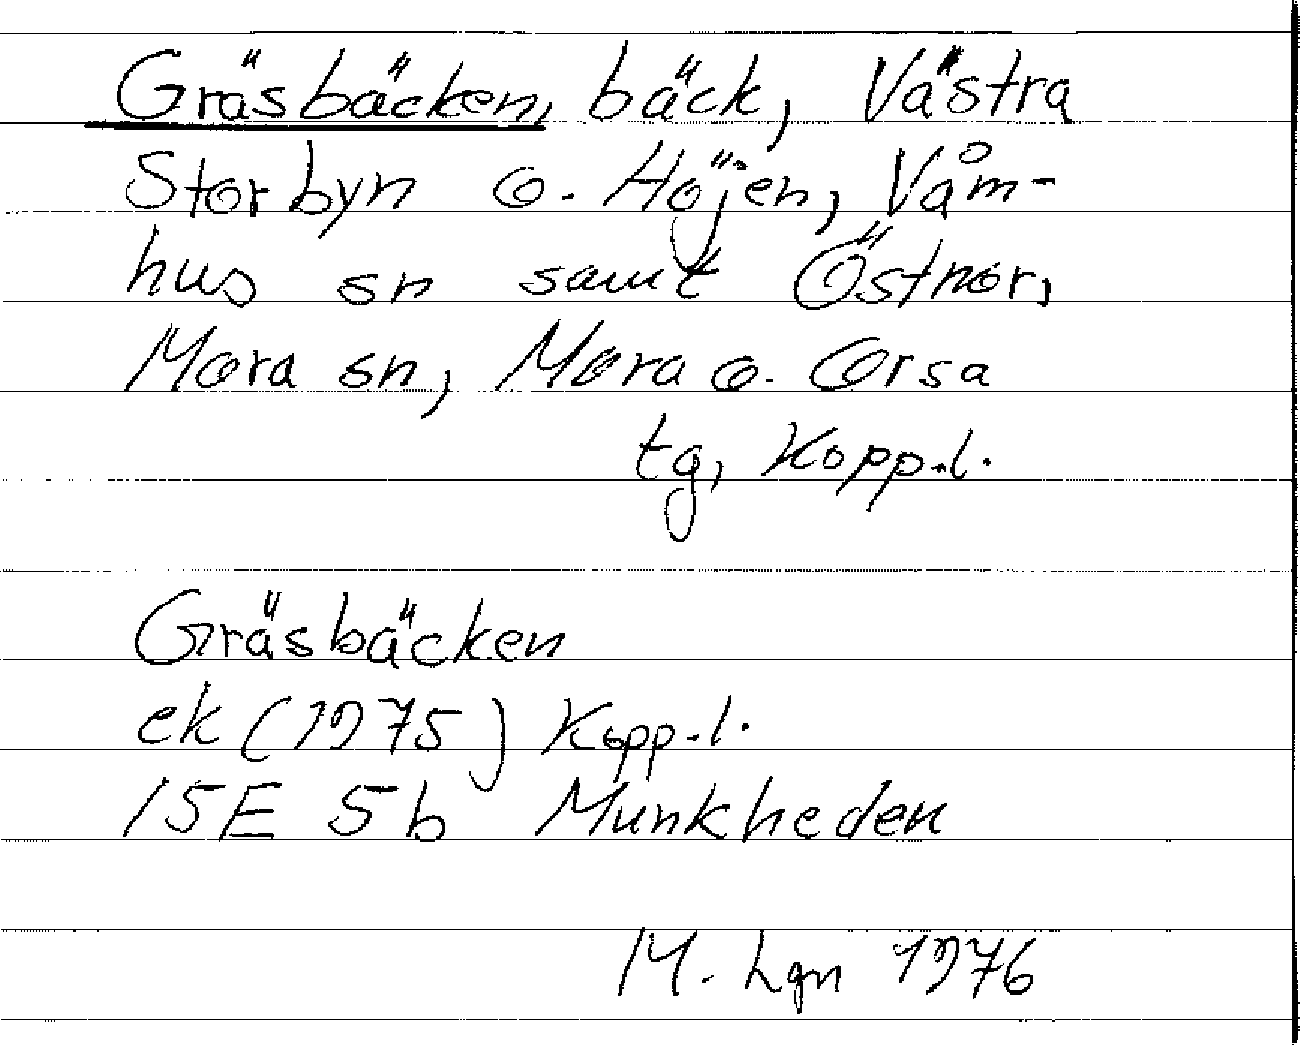 Gräsbäcken, bäck, Västra
Storbyn o. Höjen, Våm-
hus sn samt Östnor,
Mora sn, Mora o. Orsa
tg, Kopp.l.
Gräsbäcken
ek (1975) Kopp.l.
15E 5b Munkheden
M. Lgn 1976